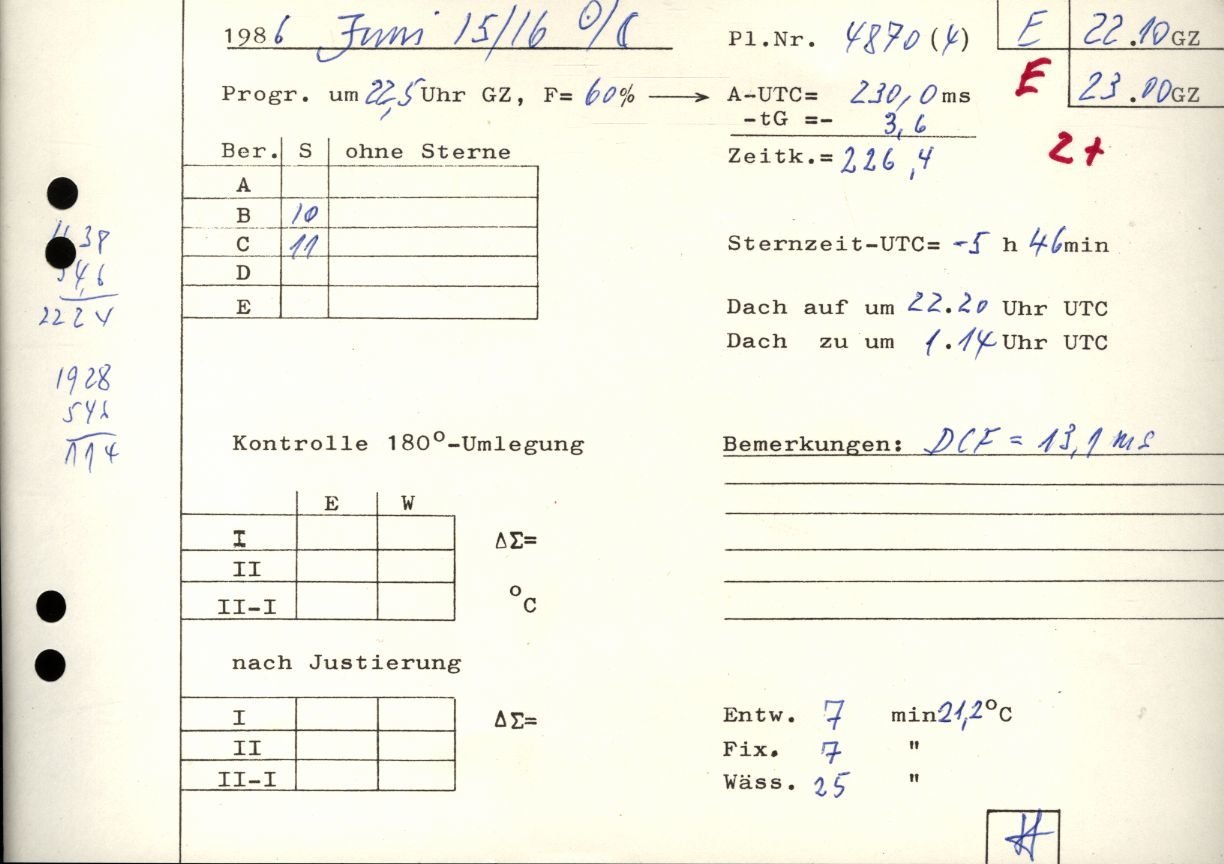 1986 Juni 15/16 ☉/☾
Pl.Nr. 4870(4)
E 22.10 GZ
Progr. um 22,5 Uhr GZ, F= 60% → A-UTC= 230,0 ms
E 23.00 GZ
-tG =- 3,6
Ber. S ohne Sterne
Zeitk.= 226,4
2+
A
B 10
C 11
D
E
38
4,6
2224
Sternzeit-UTC= -5 h 46 min
Dach auf um 22.20 Uhr UTC
Dach zu um 1.14 Uhr UTC
1928
546
114
Kontrolle 180°-Umlegung
Bemerkungen: DCF = 13,1 ms
E W
I ΔΣ=
II
II-I °C
nach Justierung
I ΔΣ=
II
II-I
Entw. 7 min 21,2°C
Fix. 7 "
Wäss. 25 "